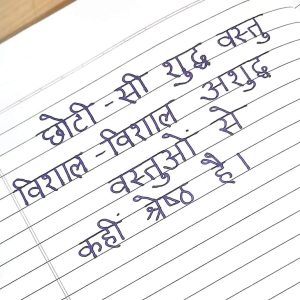 छोटी - सी शुद्ध वस्तु
विशाल - विशाल अशुद्ध
वस्तुओं से
कहीं श्रेष्ठ है।